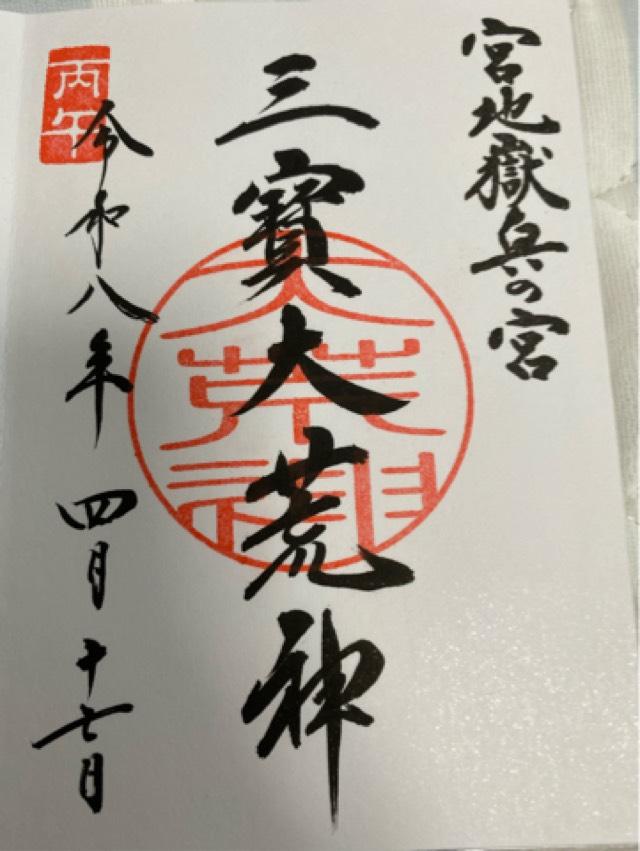 宮地嶽奥の宮
三寳大荒神
大荒神
丙午
令和八年 四月 十七日